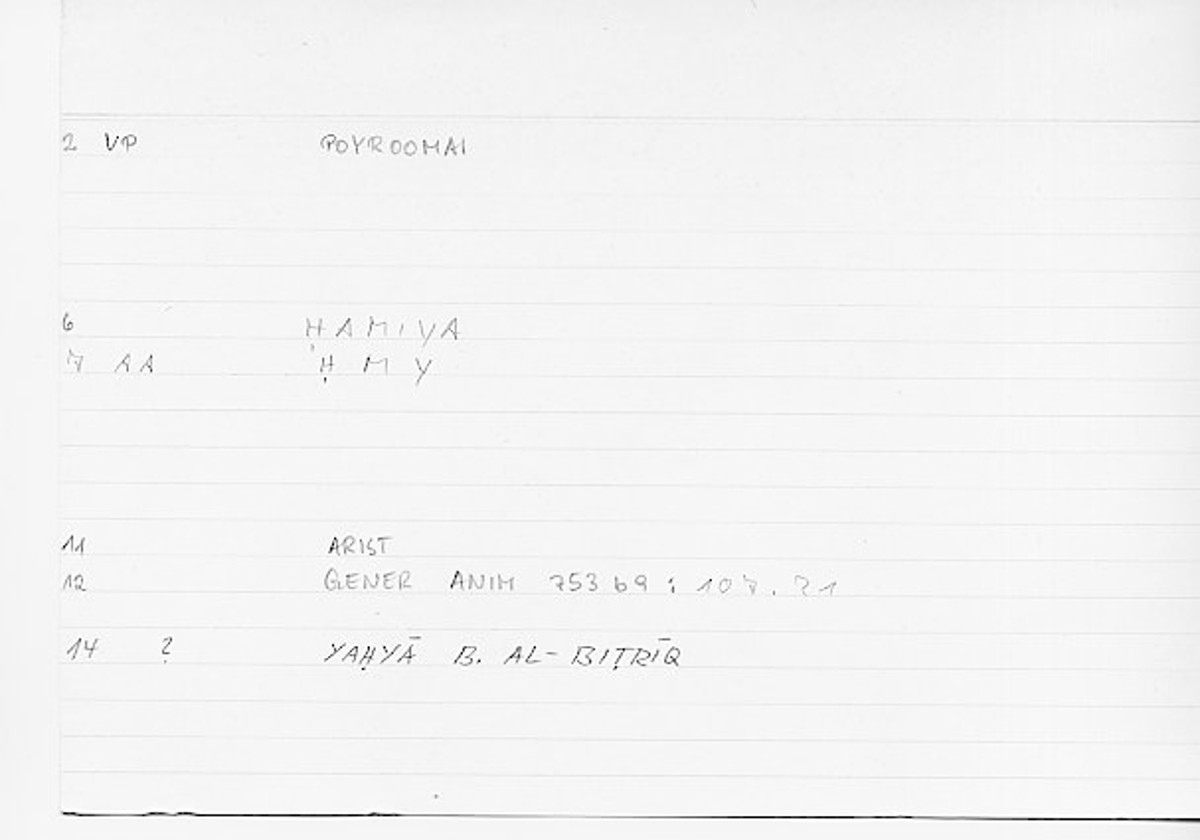 2 VP POYROOMAI
6 ḤAMIYA
7 AA Ḥ M Y
11 ARIST
12 GENER ANIM 753 b9 : 107. 21
14 ? YAḤYĀ B. AL-BIṬRĪQ